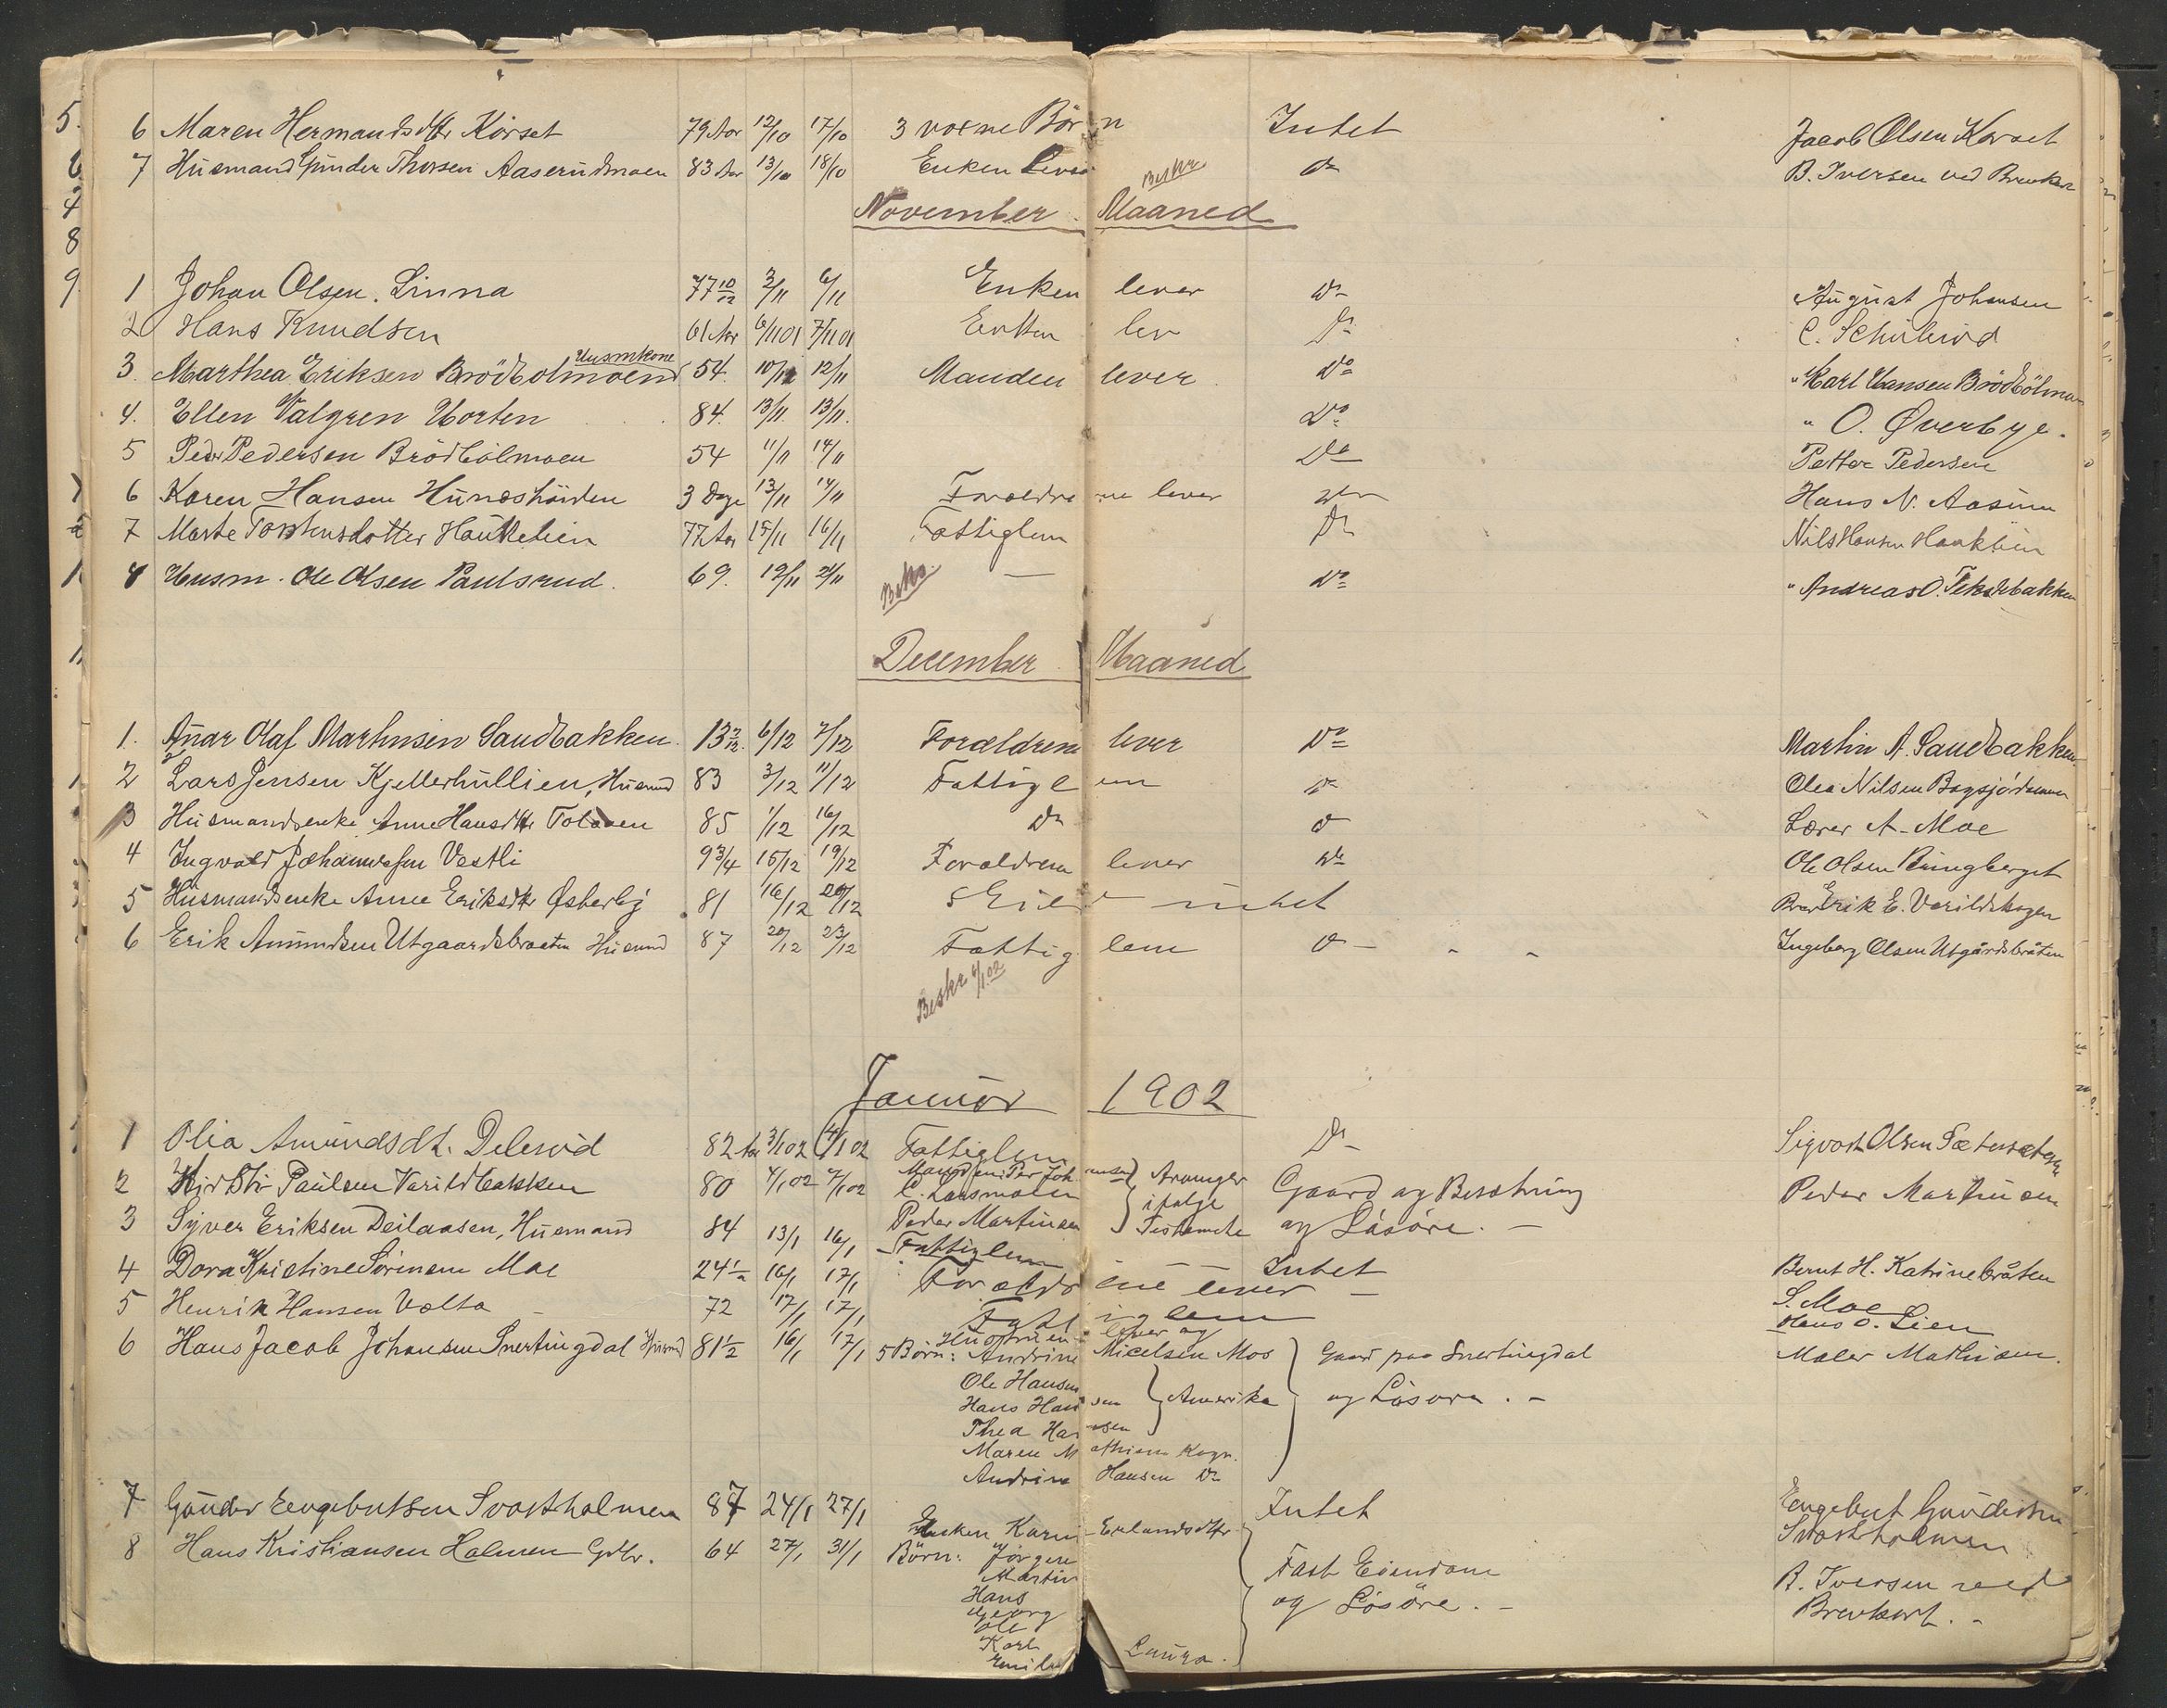 6 Maren Hermandsdtr Korset 79 Aar 12/10 17/10 3 voxne Börn Intet Jacob Olsen Korset
7 Husmand Gunder Thorsen Aaserudmoen 83 Aar 13/10 18/10 Enken Lever do B. Iversen ved Brevkort
Beskr
November Maaned
1 Johan Olsen Linna 77 10/12 2/11 6/11 Enken lever Do August Johansen
2 Hans Knudsen 61 Aar 6/11 01 7/11 01 Enken lev Do
3. Marthea Eriksen Brödbölmoen Husmkone 54. 10/11 12/11 Manden lever Do " Karl Hansen Brödbölmoen
4. Ellen Valgren Horten 84. 13/11. 13/11. Do " O. Øverbye.
5 Peder Pedersen Brödbölmoen 54 11/11 14/11 Do Petter Pedersen
6 Karen Hansen 3 Dage 13/11 14/11 Forældrene lever Do Hans N. Aasrum
7 Marte Torstensdotter Haukelien 77 Aar 15/11 16/11 Fattiglem Do Nils Hansen Haaklien
8 Husm. Ole Olsen Paulsrud. 69. 19/11 21/11 — Do " Andreas O. Fiksdtbakken
Beskr.
December Maaned
1. Ajnar Olaf Martinsen Sandbakken. 13 2/12. 6/12 7/12 Forældrene lever Do Martin A. Sandbakken.
2 Lars Jensen Kjellerhullien, Husmd 83 3/12 11/12 Fattiglem Do Olea Nilsen
3 Husmandsenke Anne Hansdtr Toloven 85 1/12 16/12 Do Do Lærer A. Moe
4 Ingvald Johannessen Vestli 9 3/4 15/12 19/12 Forældrene lever Do Ole Olsen Bringberget
5 Husmandsenke Anne Eriksdtr Østerby 81 16/12 20/12 intet Erik E. Varildskogen
6 Erik Amundsen Utgaardsbraaten Husmd 87 20/12 23/12 Fattiglem Do - - - Ingeborg Olsen Utgårdsbråten
Beskr 4/1.02
Januar 1902
1 Olia Amundsdt. Delerud 82 Aar 3/1 02 4/1 02 Fattiglem Do Sigvart Olsen
2 Kirsti Paulsen Varildbakken 80 4/1 02 7/1 02 Manden: Per Johansen Arvinger Gaard og Besætning Peder Martinsen
C. Larsmoen ifølge
3 Syver Eriksen Deilaasen, Husmand 84 13/1 16/1 Peder Martinsen Testamente og Lösöre. —
Fattiglem — — Intet Bernt H. Katrinebråten
4 Dora Kristine Sörensen Moe 24 1/2 16/1 17/1 Forældrene lever — S. Moe
5 Henrik Hansen Volta - 72 17/1 17/1 Fattiglem Hans O. Lien
6 Hans Jacob Johansen Snertingdal Husmd 81 1/2 16/1 17/1 Hustruen lever og
5 Börn: Andrine Micelsen Mos Gaard paa Snertingdal Maler Mathisen.
Ole Hansen
Hans Hansen Amerika og Lösöre. —
Thea Hansen
Maren Mathisen Kogn.
Andrine Hansen Do
7 Gunder Engebretsen Svartholmen 87 24/1 27/1 Intet Engebret Gundersen
Enken Karen Erlandsdtr Svartholmen
8 Hans Kristiansen Holmen Gdbr. 64 27/1 31/1 Börn: Jörgen
Martin Fast Eiendom B. Iversen ved
Hans og Lösöre. — Brevkort. —
Georg
Ole
Karl
Emil Laura.